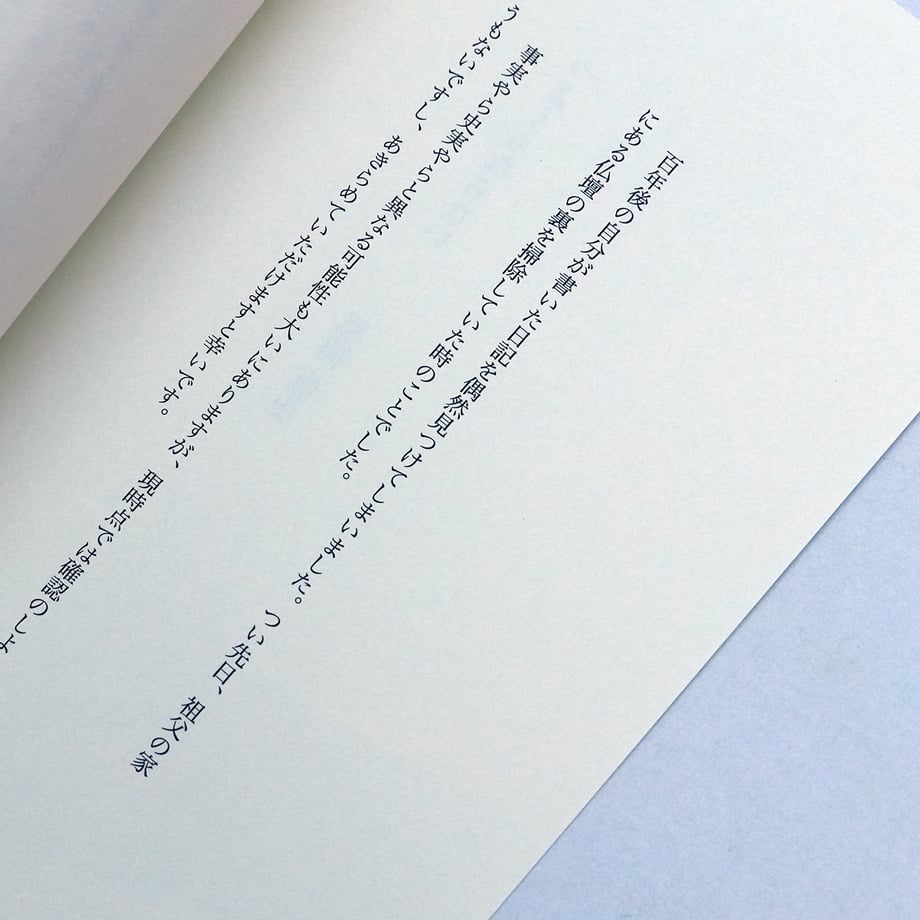 百年後の自分が書いた日記を偶然見つけてしまいました。つい先日、祖父の家
にある仏壇の裏を掃除していた時のことでした。
事実やら史実やらと異なる可能性も大いにありますが、現時点では確認のしよ
うもないですし、あきらめていただけますと幸いです。